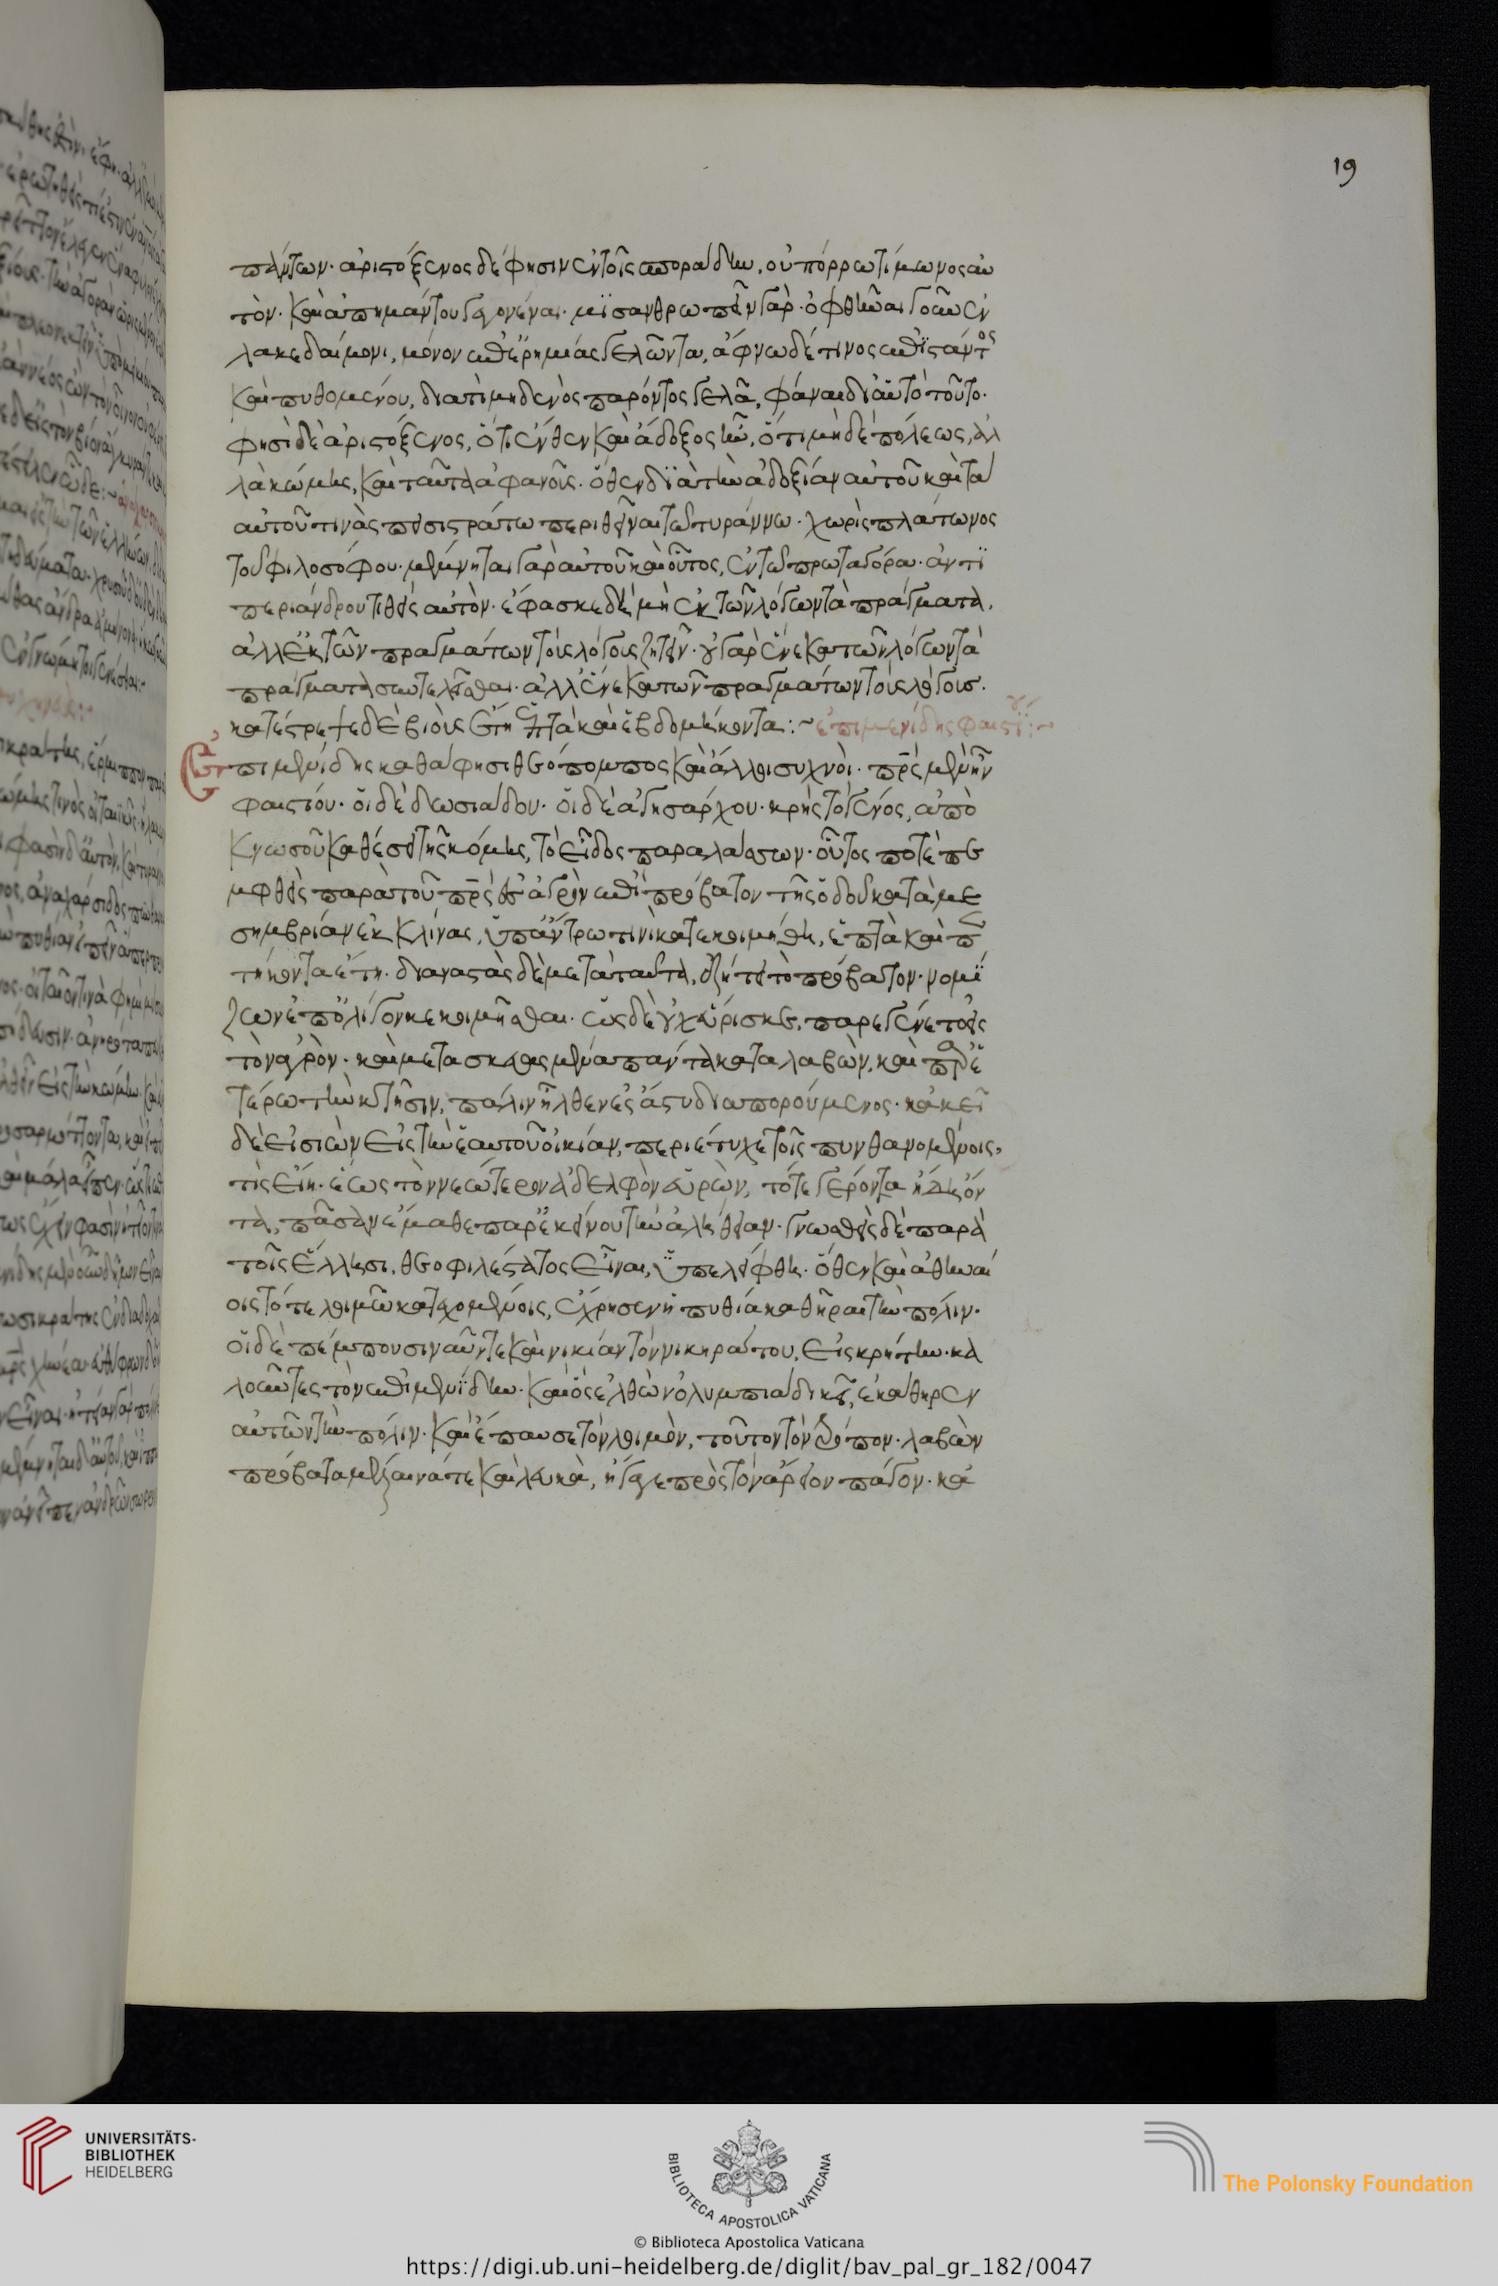 19
πάντων· ἀριστόξενος δέ φησιν ἐν τοῖς σποράδην, οὐ πόρρω τίμωνος αὐ
τὸν· καὶ ἀπημάντου γεγονέναι· μϊσανθρωπεῖν γάρ· ὀφθῆναι γοῦν ἐν
λακεδαίμονι, μόνον ἐπ' ἐρημίας γελῶντα, ἄφνω δέ τινος ἐπϊστάντος
καὶ πυθομένου, διατί μηδενὸς παρόντος γελᾶ, φάναι δι' αὐτὸ τοῦτο·
φησὶ δὲ ἀριστόξενος, ὅτι ἔνθεν καὶ ἄδοξος ἦν, ὅτι μὴ δὲ πόλεως, ἀλ
λὰ κώμης, καὶ ταῦτα ἀφανοῖς. ὅθεν διὰ τὴν ἀδοξίαν αὐτοῦ καὶ τὰ
αὐτοῦ τινὰς πεισιστράτω περιθεῖναι τῶ τυράννω· χωρὶς πλάτωνος
τοῦ φιλοσόφου· μέμνηται γὰρ αὐτοῦ καὶ οὗτος, ἐν τῶ πρωταγόρα· ἀντϊ
περιάνδρου τιθεὶς αὐτὸν· ἔφασκε δὲ μὴ ἐκ τῶν λόγων τὰ πράγματα,
ἀλλ' ἐκ τῶν πραγμάτων τοὺς λόγους ζητεῖν· οὐ γὰρ ἕνεκα τῶν λόγων τὰ
πράγματα συντελεῖσθαι· ἀλλ' ἕνεκα τῶν πραγμάτων τοὺς λόγους.
κατέστρεψε δὲ βιοὺς ἔτη ἑπτὰ καὶ ἑβδομήκοντα:~ ἐπιμενίδης φαιστϊου:~
Ἐπιμενίδης καθά φησι θεόπομπος καὶ ἄλλοι συχνοὶ· πρς μὲν ἦν
φαιστίου· οἱ δὲ δωσιάδου· οἱ δὲ ἀγησάρχου· κρὴς τὸ γένος, ἀπὸ
κνωσοῦ καθέσει τῆς κόμης, τὸ εἶδος παραλάσσων· οὗτος ποτὲ πε
μφθεὶς παρὰ τοῦ πρς εἰς ἀγρὸν ἐπὶ πρόβατον τῆς ὁδοῦ κατὰ με
σημβρίαν ἐκκλίνας, ὑπ' ἄντρω τινὶ κατεκοιμήθη, ἑπτὰ καὶ πεν
τήκοντα ἔτη· διαναστὰς δὲ μετὰ ταῦτα, ἐζήτει τὸ πρόβατον· νομΐ
ζων ἐπ' ὀλίγον κεκοιμῆσθαι· ὡς δὲ οὐχ εὕρισκε, παρεγένετο εἰς
τὸν ἀγρὸν· καὶ μετασκευασμένα πάντα καταλαβὼν, καὶ παρ' ἑ
τέρω τὴν κτῆσιν, πάλιν ἦλθεν εἰς ἄστυ διαπορούμενος· κἀκεῖ
δὲ εἰσιὼν εἰς τὴν ἑαυτοῦ οἰκίαν, περιέτυχε τοῖς πυνθανομένοις,
τίς εἴη· ἕως τὸν νεώτερον ἀδελφὸν εὑρὼν, τότε γέροντα ἤδη ὄν
τα, πᾶσαν ἔμαθε παρ' ἐκείνου τὴν ἀλήθειαν· γνωσθεὶς δὲ παρὰ
τοῖς ἕλλησι, θεοφιλέστατος εἶναι, ὑπελείφθη· ὅθεν καὶ ἀθηναί
οις τότε λοιμῶ κατεχομένοις, ἔχρησεν ἡ πυθία καθῆραι τὴν πόλιν·
οἱ δὲ πέμπουσι ναῦν τε καὶ νικίαν τὸν νικηράτου, εἰς κρήτην· κα
λοῦντες τὸν ἐπιμενΐδην· καὶ ὃς ἐλθὼν ὀλυμπιάδι κζ, ἐκάθηρεν
αὐτῶν τὴν πόλιν· καὶ ἔπαυσε τὸν λοιμὸν, τοῦτον τὸν τρόπον· λαβὼν
πρόβατα μέλαινά τε καὶ λευκὰ, ἤγαγε πρὸς τὸν ἄρειον πάγον· κἀ
UNIVERSITÄTS-
BIBLIOTHEK
HEIDELBERG
BIBLIOTECA APOSTOLICA VATICANA
The Polonsky Foundation
© Biblioteca Apostolica Vaticana
https://digi.ub.uni-heidelberg.de/diglit/bav_pal_gr_182/0047